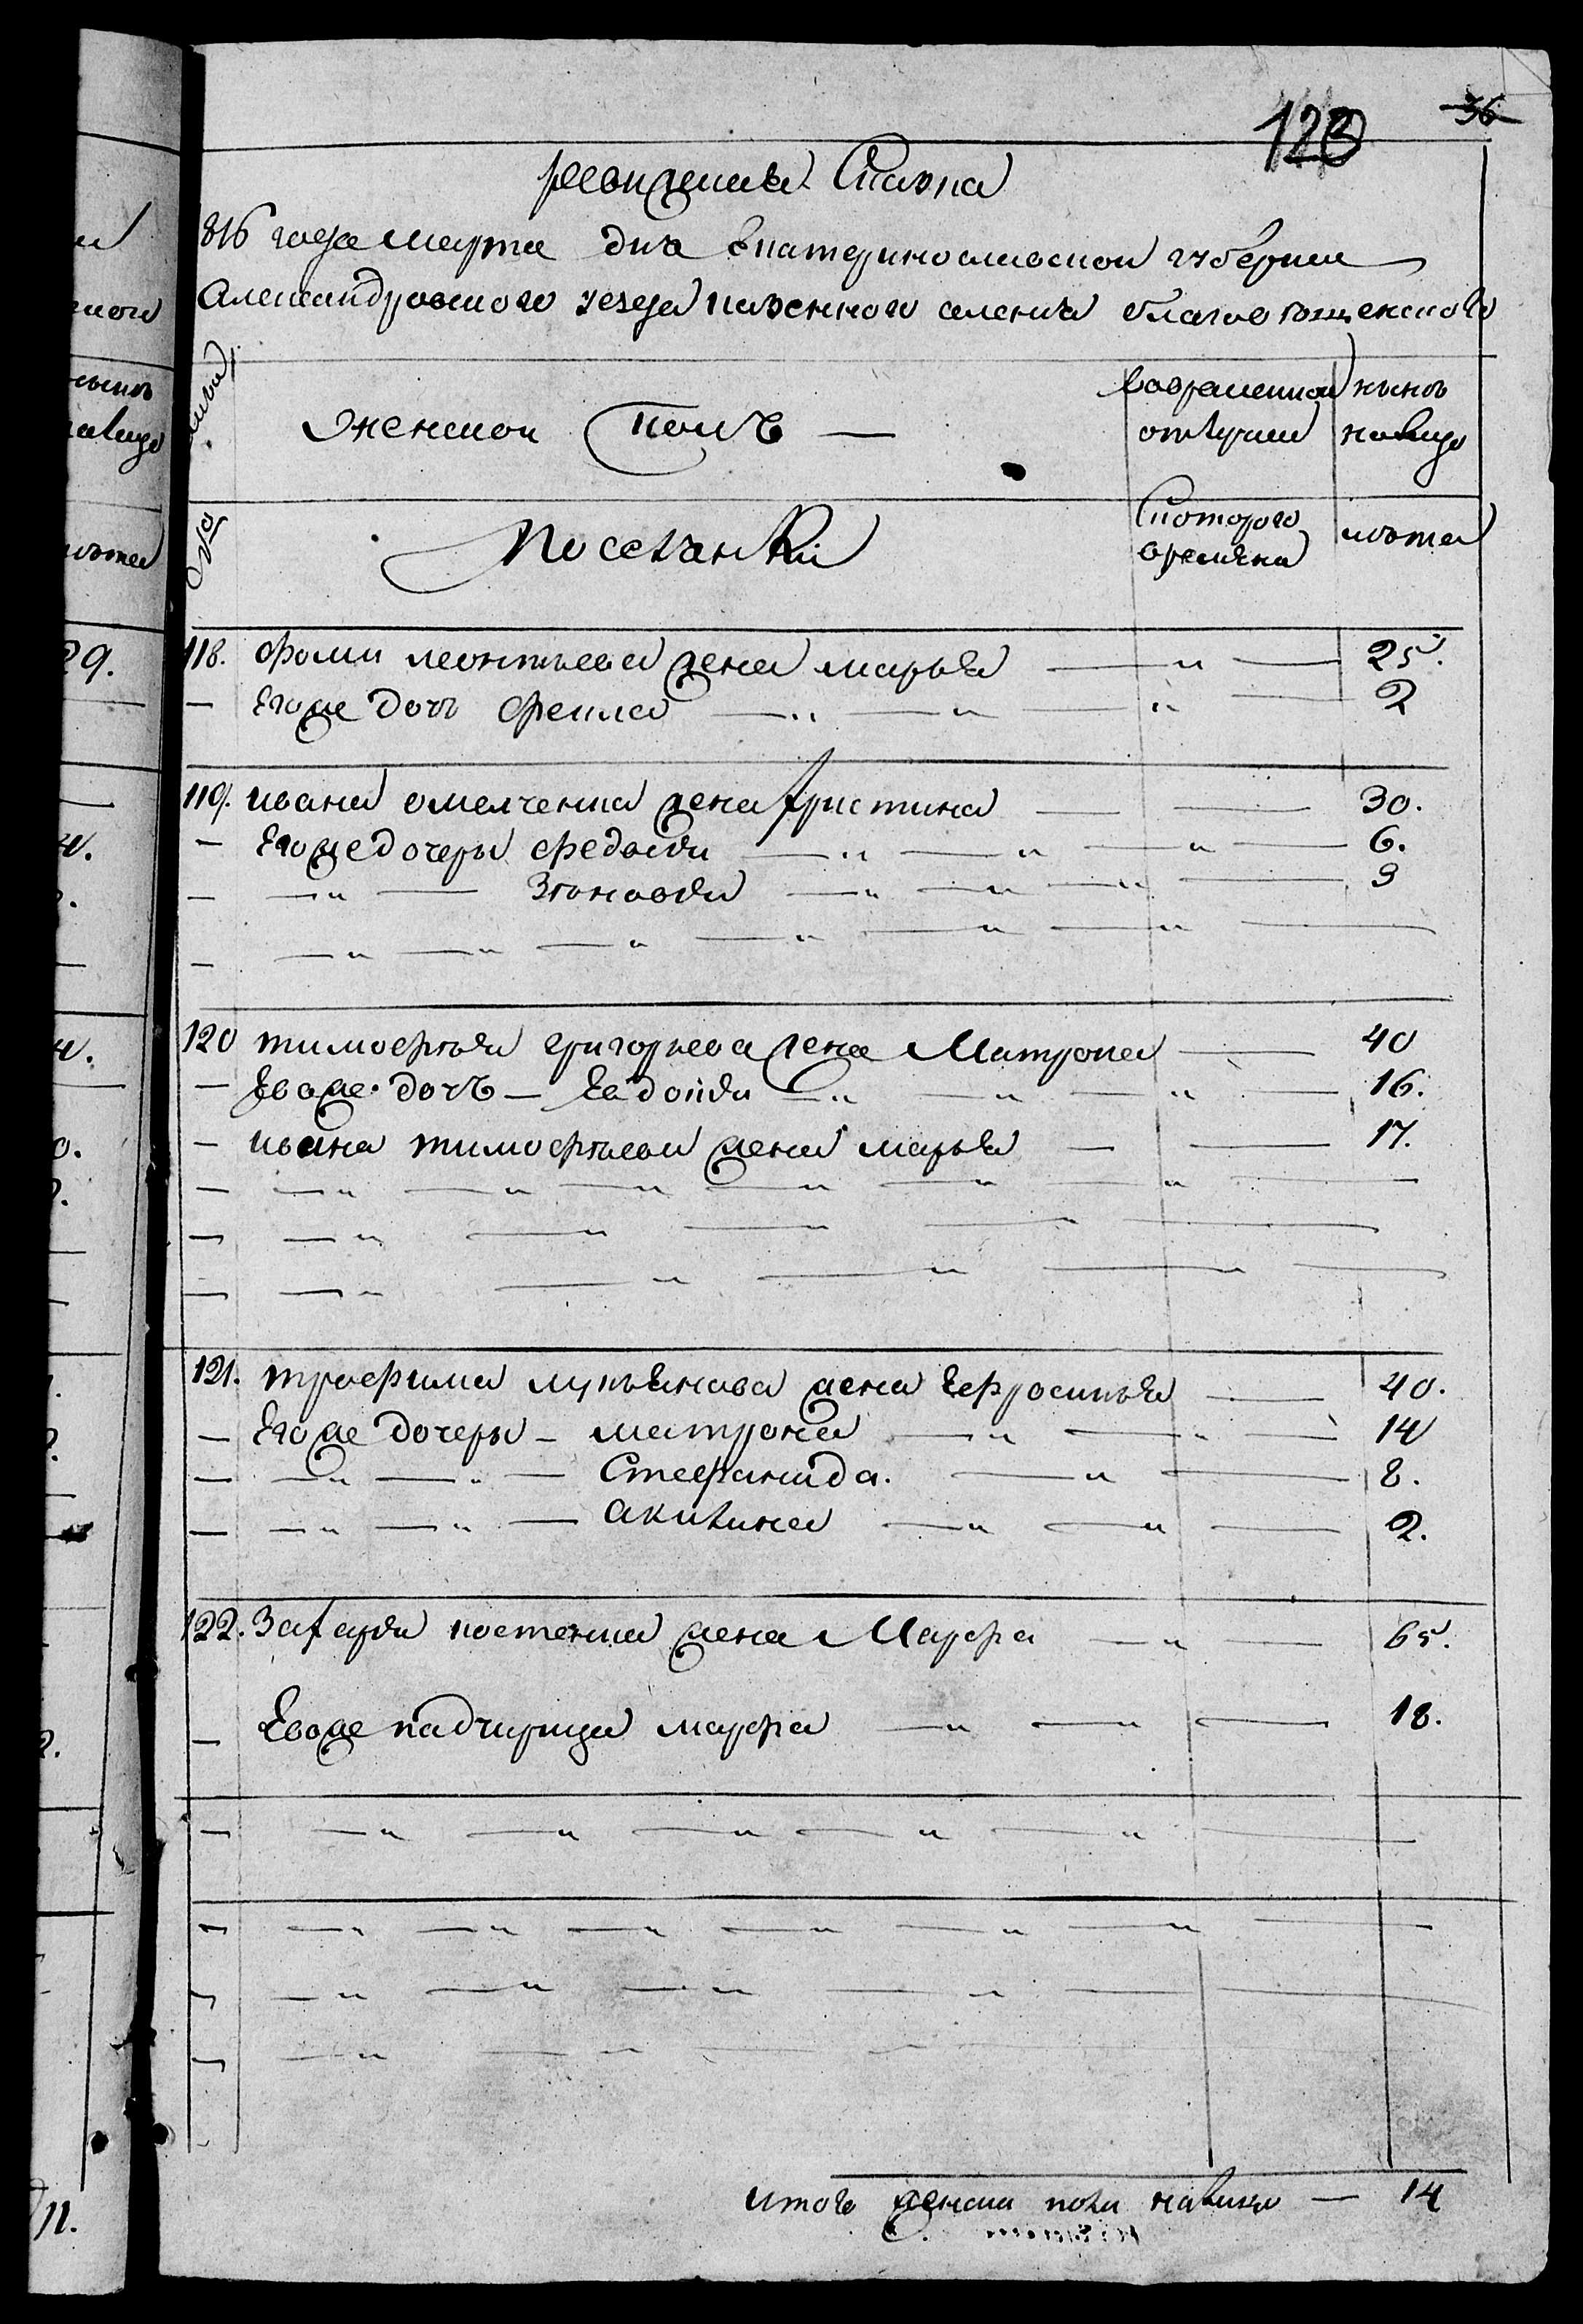 123 36
ревизская Сказка
816 года марта дня Екатеринославской губернии
Александровского уезда казенного селения благовещенского
женской полъ —
вовременной отлучки
ныне налицо
№
Поселянки
Скоторого времяни
лѣта
118. Фомы леонтьева жена марья — 25.
— Егоже дочь Фекла — 2
119. ивана омелченка жена христина — 30.
— Егоже дочеры Федосия — 6.
— Зѣновия — 3
120 тимофѣя григорьева жена Матрона — 40
— Евоже дочъ — Евдокия — 16.
— ивана тимофѣева жена марья — 17.
121. трофима лукьянова жена Ефросинья — 40.
— Егоже дочеры — матрона — 14
— Стефанида. — 8.
— Акилина — 2.
122. Захария костенка жена Марфа — 65.
— Евоже падчирица марфа — 18.
итого женска пола налицо — 14
29.
11.